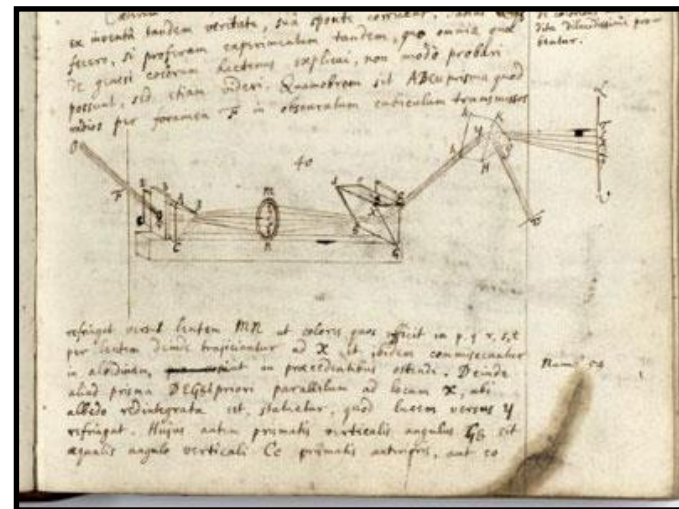 ex inventa tandem veritate, sua sponte corruent. Satius
fecero, si proferam experimentum tandem, quo omnia quæ
de genesi colorum hactenus explicui, non modo probari
possunt, sed etiam videri. Quamobrem sit ABC prisma quod
radios per foramen F in obscuratum cubiculum transmissos
de coloribus
dita dilucidissime pro-
bentur.
40
refringit versus lentem MN ut colores quos efficit in p, q, r, s, t
per lentem deinde trajiciantur ad X et ibidem commisceantur
in albedinem, ut in præcedentibus ostendi. Deinde
aliud prisma DEG priori parallelum ad locum X, ubi
albedo redintegrata est, statuatur, quod lucem versus Y
refringat. Hujus autem prismatis verticalis angulus Gg sit
æqualis angulo verticali Cc prismatis anterioris, aut eo